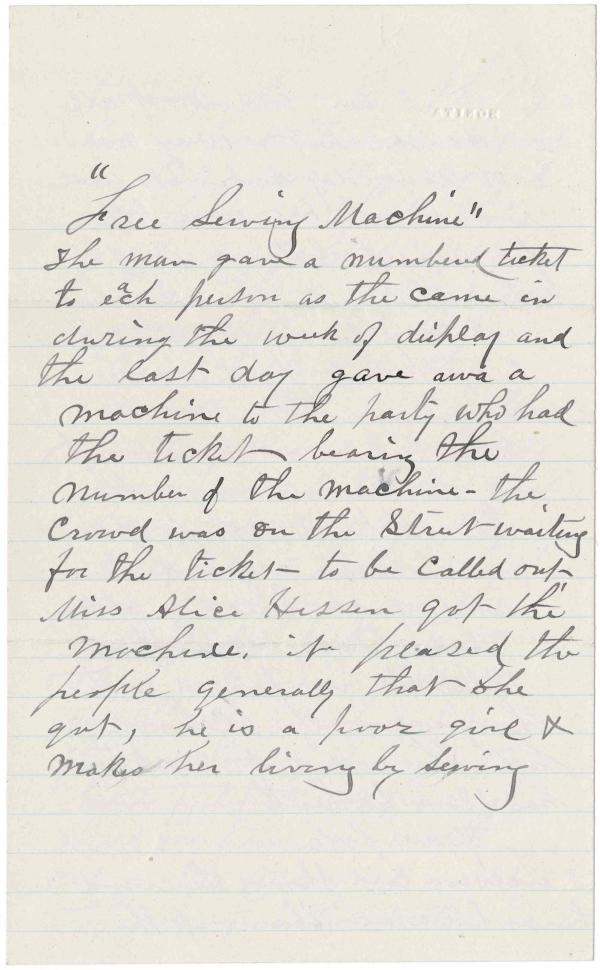 "Free Sewing Machine"
The man gave a numbered ticket
to each person as the came in
during the week of display and
the last day gave awa a
machine to the party who had
the ticket bearing the
number of the machine - the
Crowd was on the Street waiting
for the ticket to be Called out
Miss Alice Hessen got the
machine. it pleased the
people generally that She
got, he is a poor girl &
makes her living by Sewing